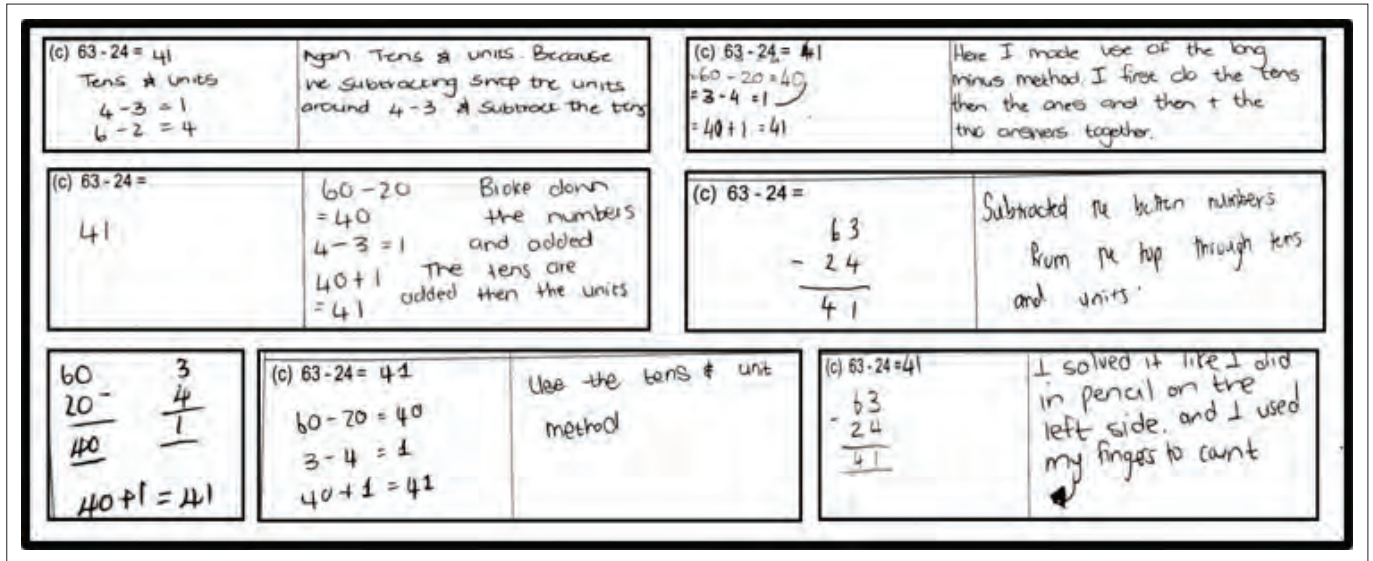 (c) 63 - 24 = 41
Tens & units
4 - 3 = 1
6 - 2 = 4
Again Tens & units. Because
we subtracting swap the units
around 4-3 & subtract the tens
(c) 63 - 24 = 41
-60 - 20 = 40
= 3 - 4 = 1
= 40 + 1 = 41
Here I made use of the long
minus method. I first do the tens
then the ones and then + the
two answers together.
(c) 63 - 24 =
41
60 - 20
= 40
4 - 3 = 1
40 + 1
= 41
Broke down
the numbers
and added
The tens are
added then the units
(c) 63 - 24 =
63
- 24
41
Subtracted the bottom numbers
from the top through tens
and units.
60 3
20 - 4
40 1
40 + 1 = 41
(c) 63 - 24 = 41
60 - 20 = 40
3 - 4 = 1
40 + 1 = 41
Use the tens & unit
method
(c) 63 - 24 = 41
63
- 24
41
I solved it like I did
in pencil on the
left side. and I used
my fingers to count